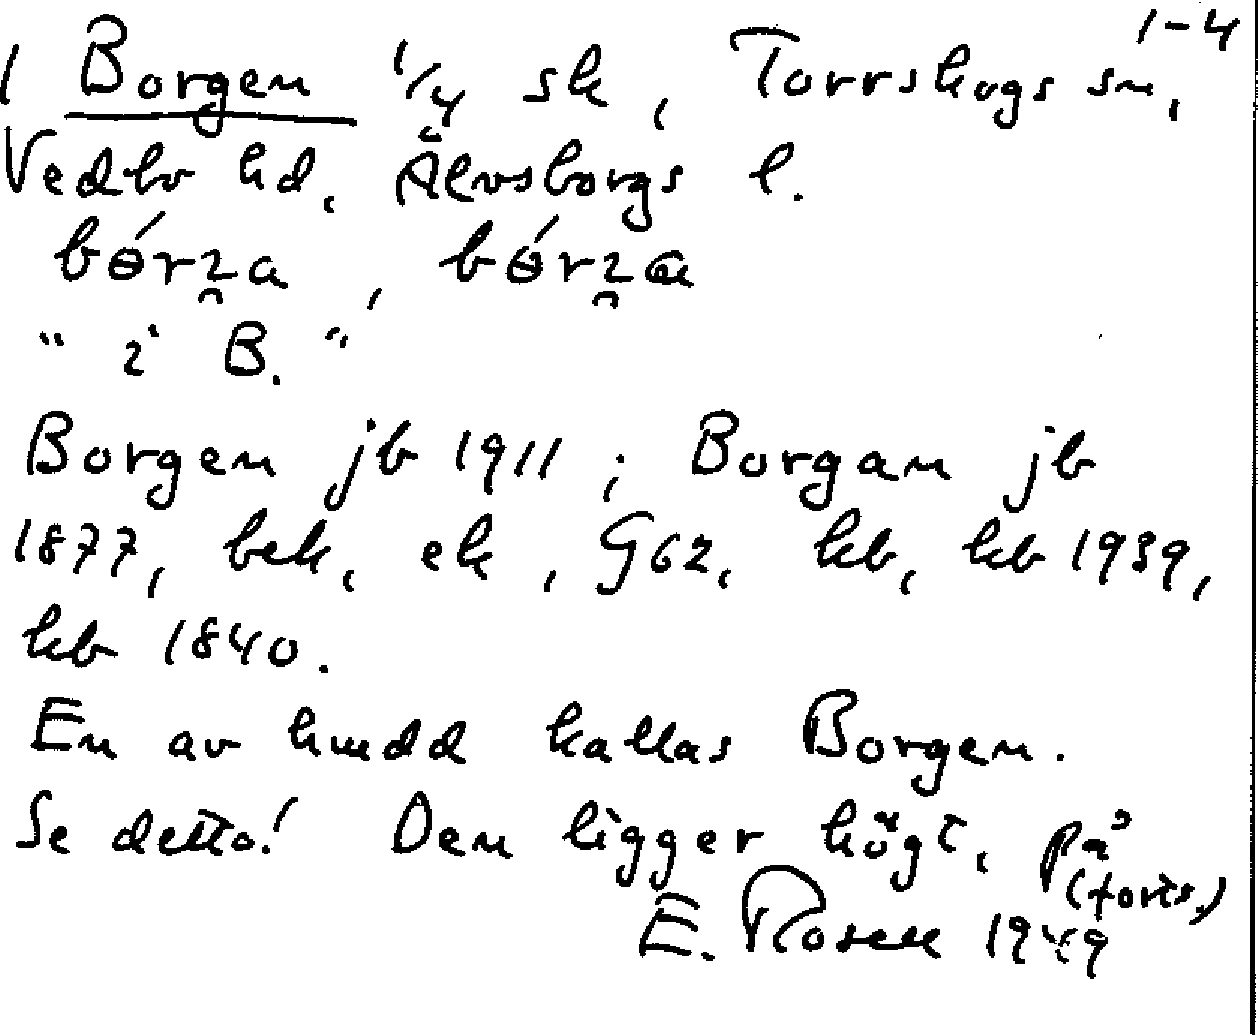 1-4
1 Borgen 1/4 sk, Torrskogs sn,
Vedbo hd, Älvsborgs l.
" i B. "
Borgen jb 1911; Borgan jb
1877, bek, ek, G62, kb, kb 1939,
kb 1840.
En av hmdd kallas Borgen.
Se detto! Den ligger högt, på
(forts.)
E. Rosell 1949